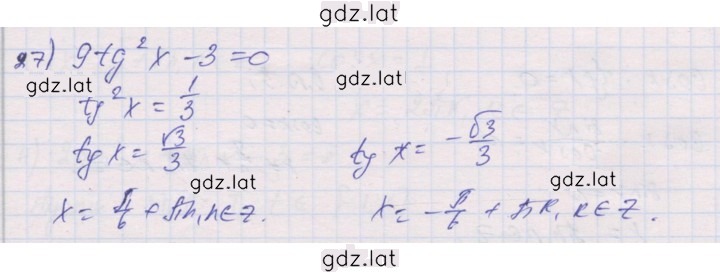 gdz.lat
27) 9tg²x - 3 = 0
gdz.lat
tg²x = 1/3
gdz.lat
tg x = √3/3
tg x = -√3/3
gdz.lat
gdz.lat
gdz.lat
x = π/6 + πn, n ∈ Z.
x = -π/6 + πk, k ∈ Z.
gdz.lat